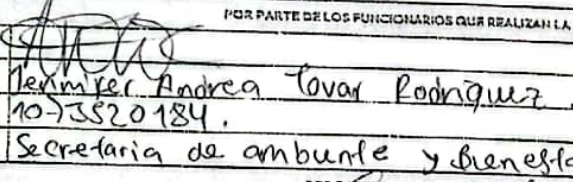 POR PARTE DE LOS FUNCIONARIOS QUE REALIZAN LA
Jennifer Andrea Tovar Rodriguez
1073520184.
Secretaria de ambunte y Bienesta